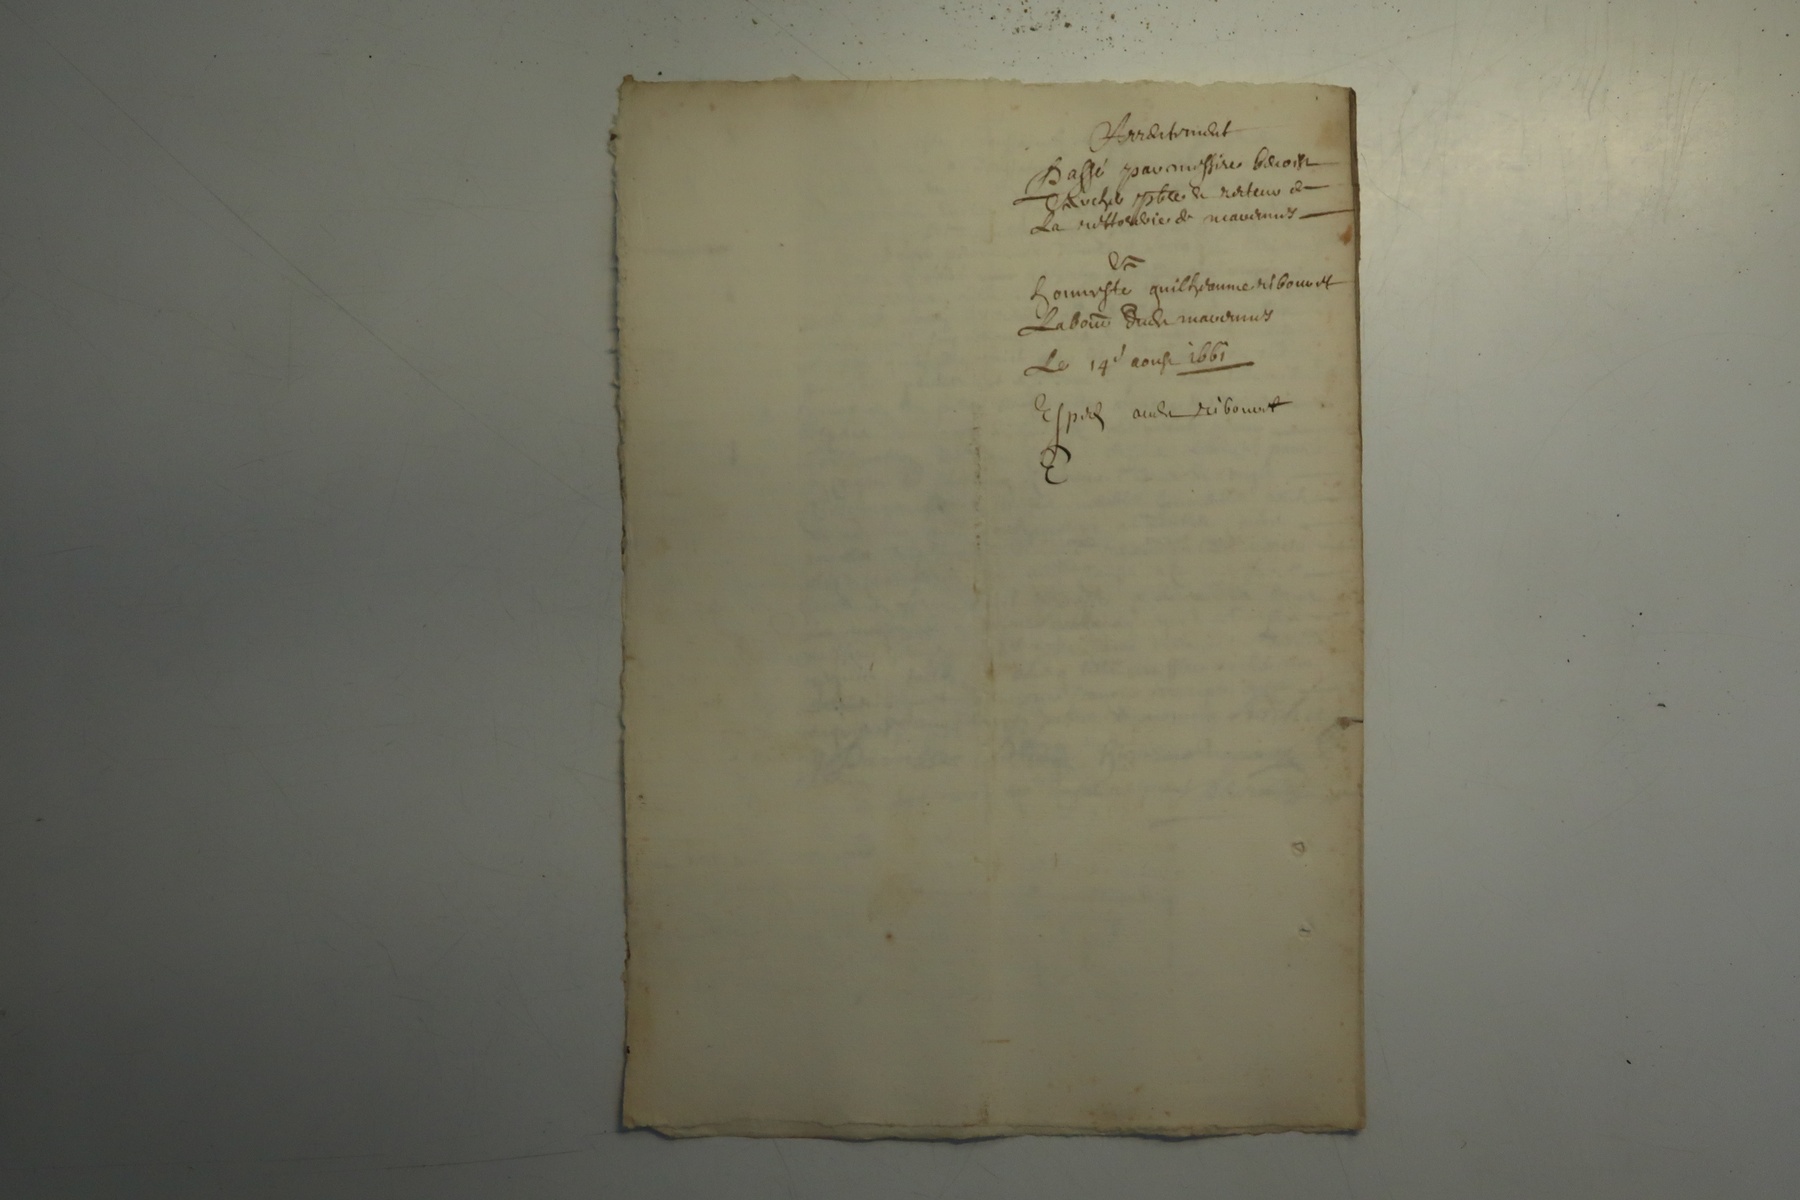 Arrentement
Passé par messire benoist
pbre & recteur de
La rettorerie de maverines
Et
honneste guilheaume ribouvet
Labour dud maverines
Le 14e aoust 1661
Exped aud ribouvet
E